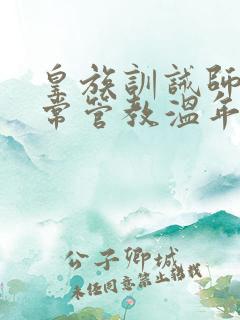 皇族訓誡師
常管教溫年
公子卿城
未经同意禁止转载